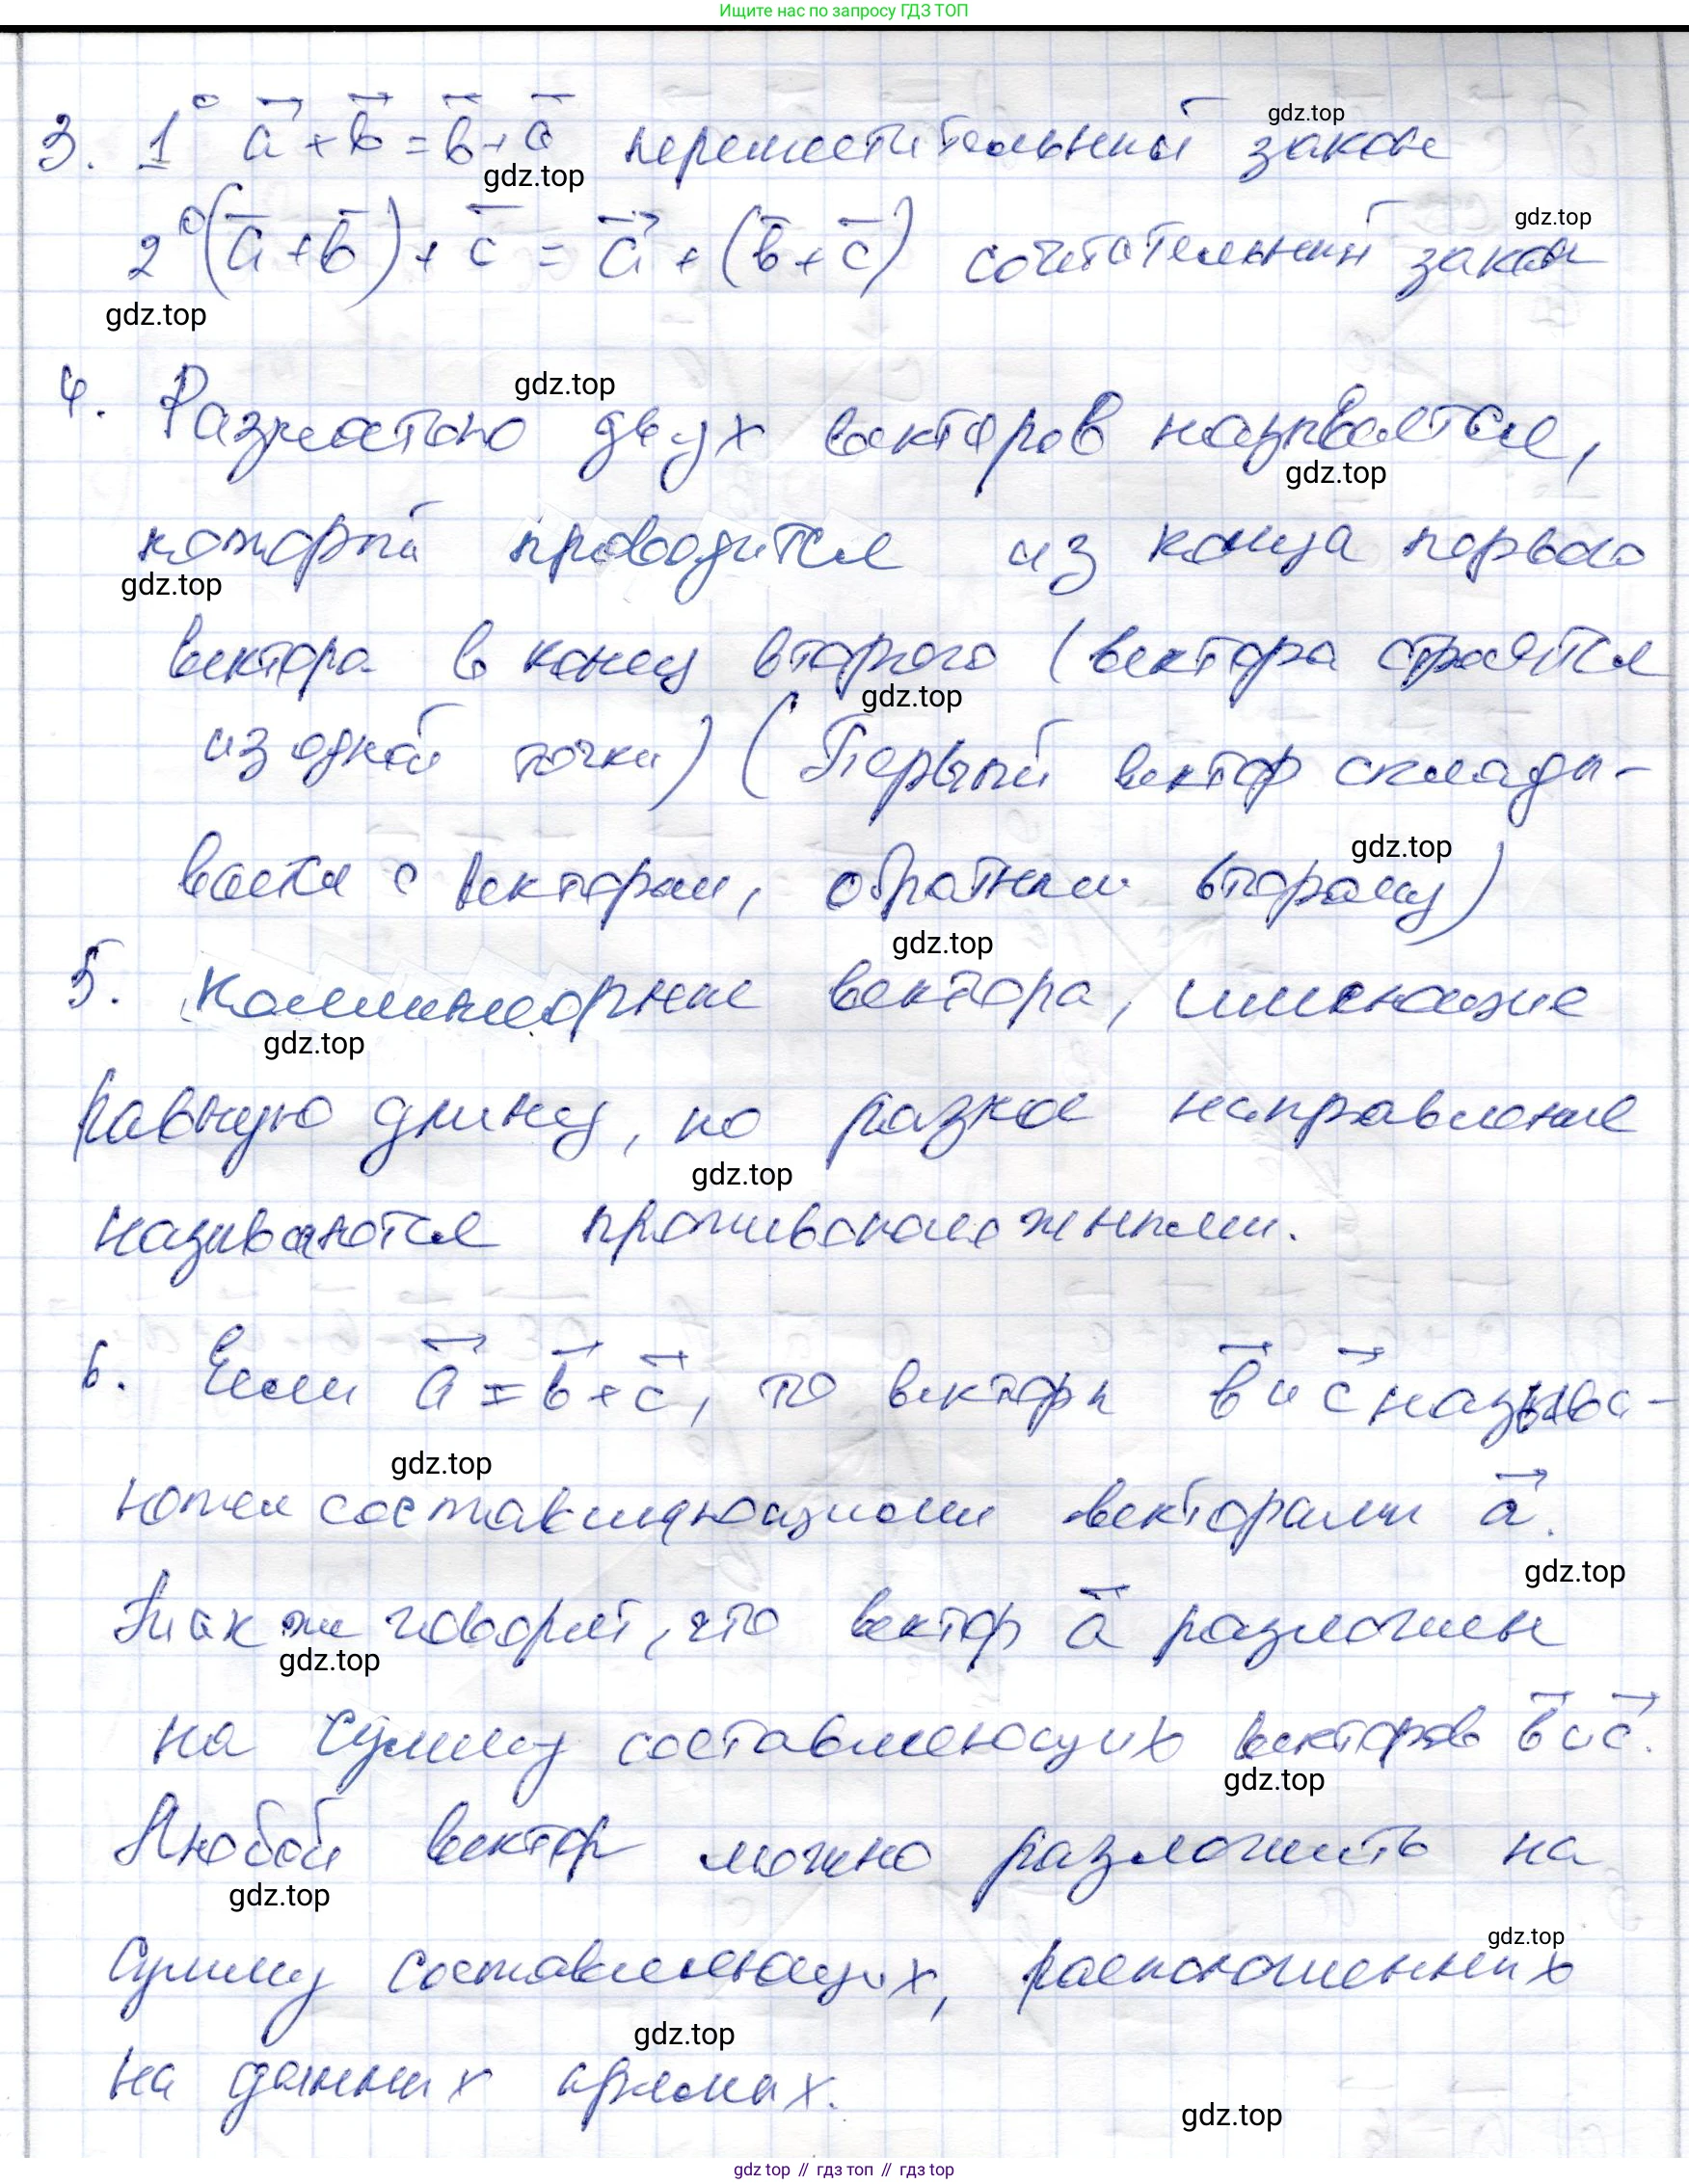 Ищите нас по запросу ГДЗ ТОП
3. 1° a⃗ + b⃗ = b⃗ + a⃗ переместительный закон
gdz.top
gdz.top
2° (a⃗ + b⃗) + c⃗ = a⃗ + (b⃗ + c⃗) сочетательный закон
gdz.top
gdz.top
gdz.top
4. Разностью двух векторов называется,
gdz.top
который проводится из конца первого
gdz.top
вектора в конец второго (вектора строятся
gdz.top
из одной точки) (Первый вектор склады-
gdz.top
вается с вектором, обратным второму)
gdz.top
5. Коллинеарные вектора, имеющие
gdz.top
равную длину, но разное направление
gdz.top
называются противоположными.
6. Если a⃗ = b⃗ + c⃗, то вектора b⃗ и c⃗ называ-
gdz.top
ются составляющими векторами a⃗.
gdz.top
Так же говорят, что вектор a⃗ разложен
gdz.top
на сумму составляющих векторов b⃗ и c⃗.
gdz.top
Любой вектор можно разложить на
gdz.top
gdz.top
сумму составляющих, расположенных
gdz.top
на данных прямых.
gdz.top
gdz top // гдз топ // гдз top